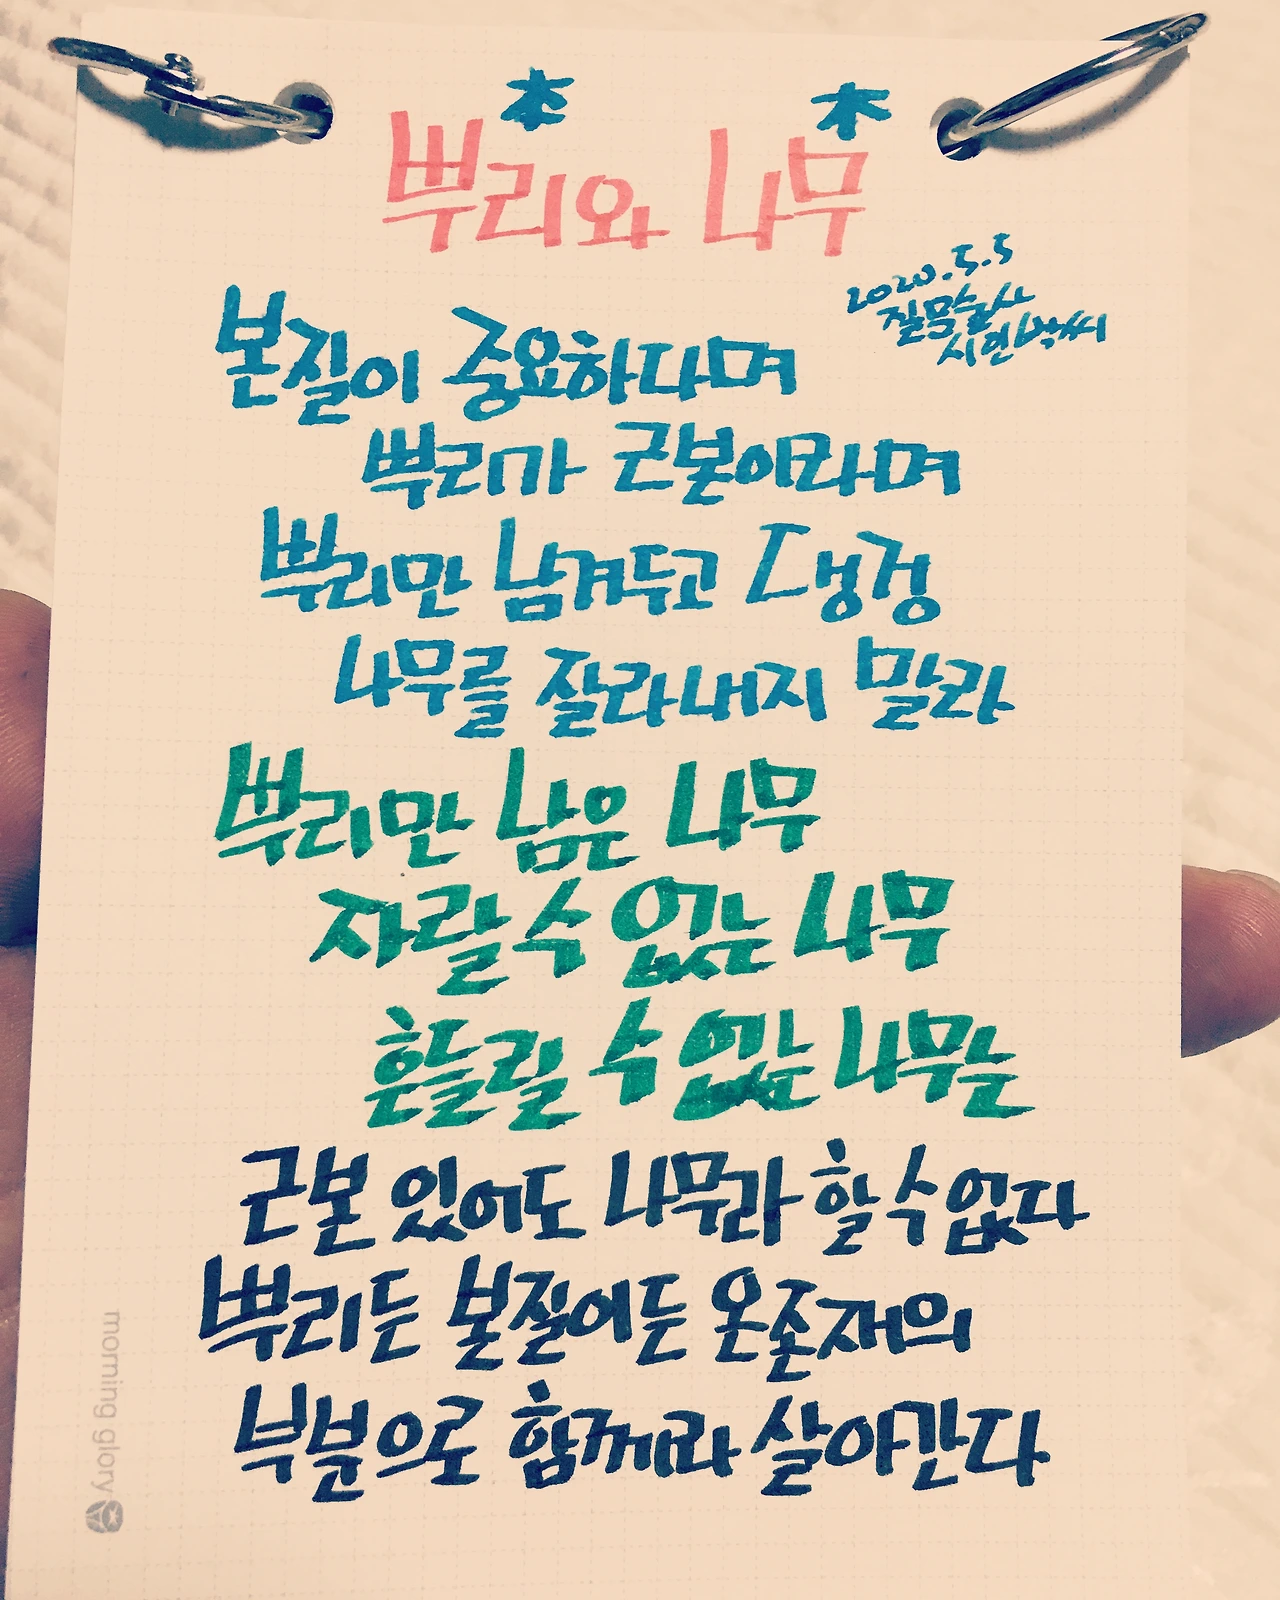 뿌리와 나무
2020.5.5
질문술사
시인박씨
본질이 중요하다며
뿌리가 근본이라며
뿌리만 남겨두고 댕겅
나무를 잘라내지 말라
뿌리만 남은 나무
자랄 수 없는 나무
흔들릴 수 없는 나무는
근본 있어도 나무라 할 수 없다
뿌리든 본질이든 온존재의
부분으로 함께라 살아간다
morning glory